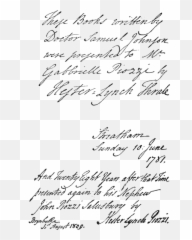 These Books written by
Doctor Samuel Johnson
were presented to Mr
Gabrielle Piozzi by
Hester Lynch Thrale
Streatham
Sunday 10 June
1781.
And Twenty Eight Years after that Time
presented again to his Nephew
John Piozzi Salusbury by
Hester Lynch Piozzi.
Brynbella
August 1809.